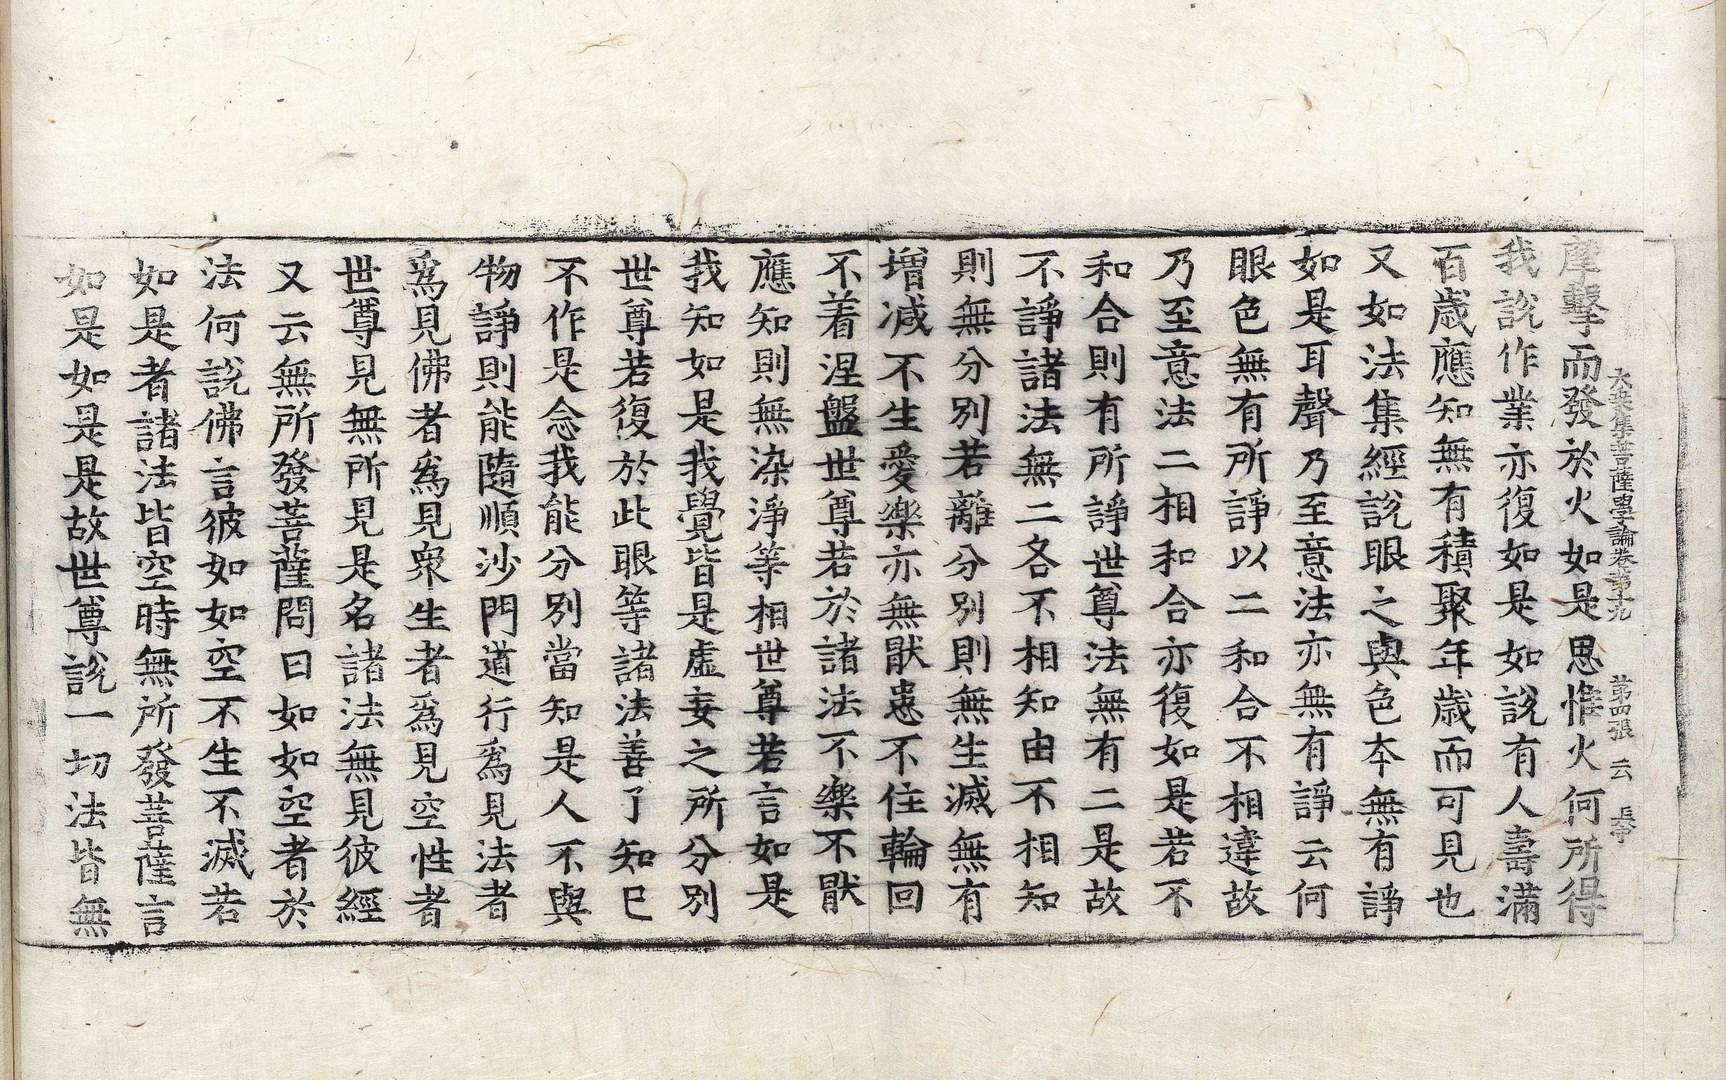 大乘集菩薩學論卷第十九　第四張　云
摩擊而發於火如是思惟火何所得
我說作業亦復如是如說有人壽滿
百歲應知無有積聚年歲而可見也
又如法集經說眼之與色本無有諍
如是耳聲乃至意法亦無有諍云何
眼色無有所諍以二和合不相違故
乃至意法二相和合亦復如是若不
和合則有所諍世尊法無有二是故
不諍諸法無二各不相知由不相知
則無分別若離分別則無生滅無有
增減不生愛樂亦無猒患不住輪回
不着涅盤世尊若於諸法不樂不猒
應知則無染淨等相世尊若言如是
我知如是我覺皆是虛妄之所分別
世尊若復於此眼等諸法善了知已
不作是念我能分別當知是人不與
物諍則能隨順沙門道行爲見法者
爲見佛者爲見衆生者爲見空性者
世尊見無所見是名諸法無見彼經
又云無所發菩薩問曰如如空者於
法何說佛言彼如如空不生不滅若
如是者諸法皆空時無所發菩薩言
如是如是是故世尊說一切法皆無